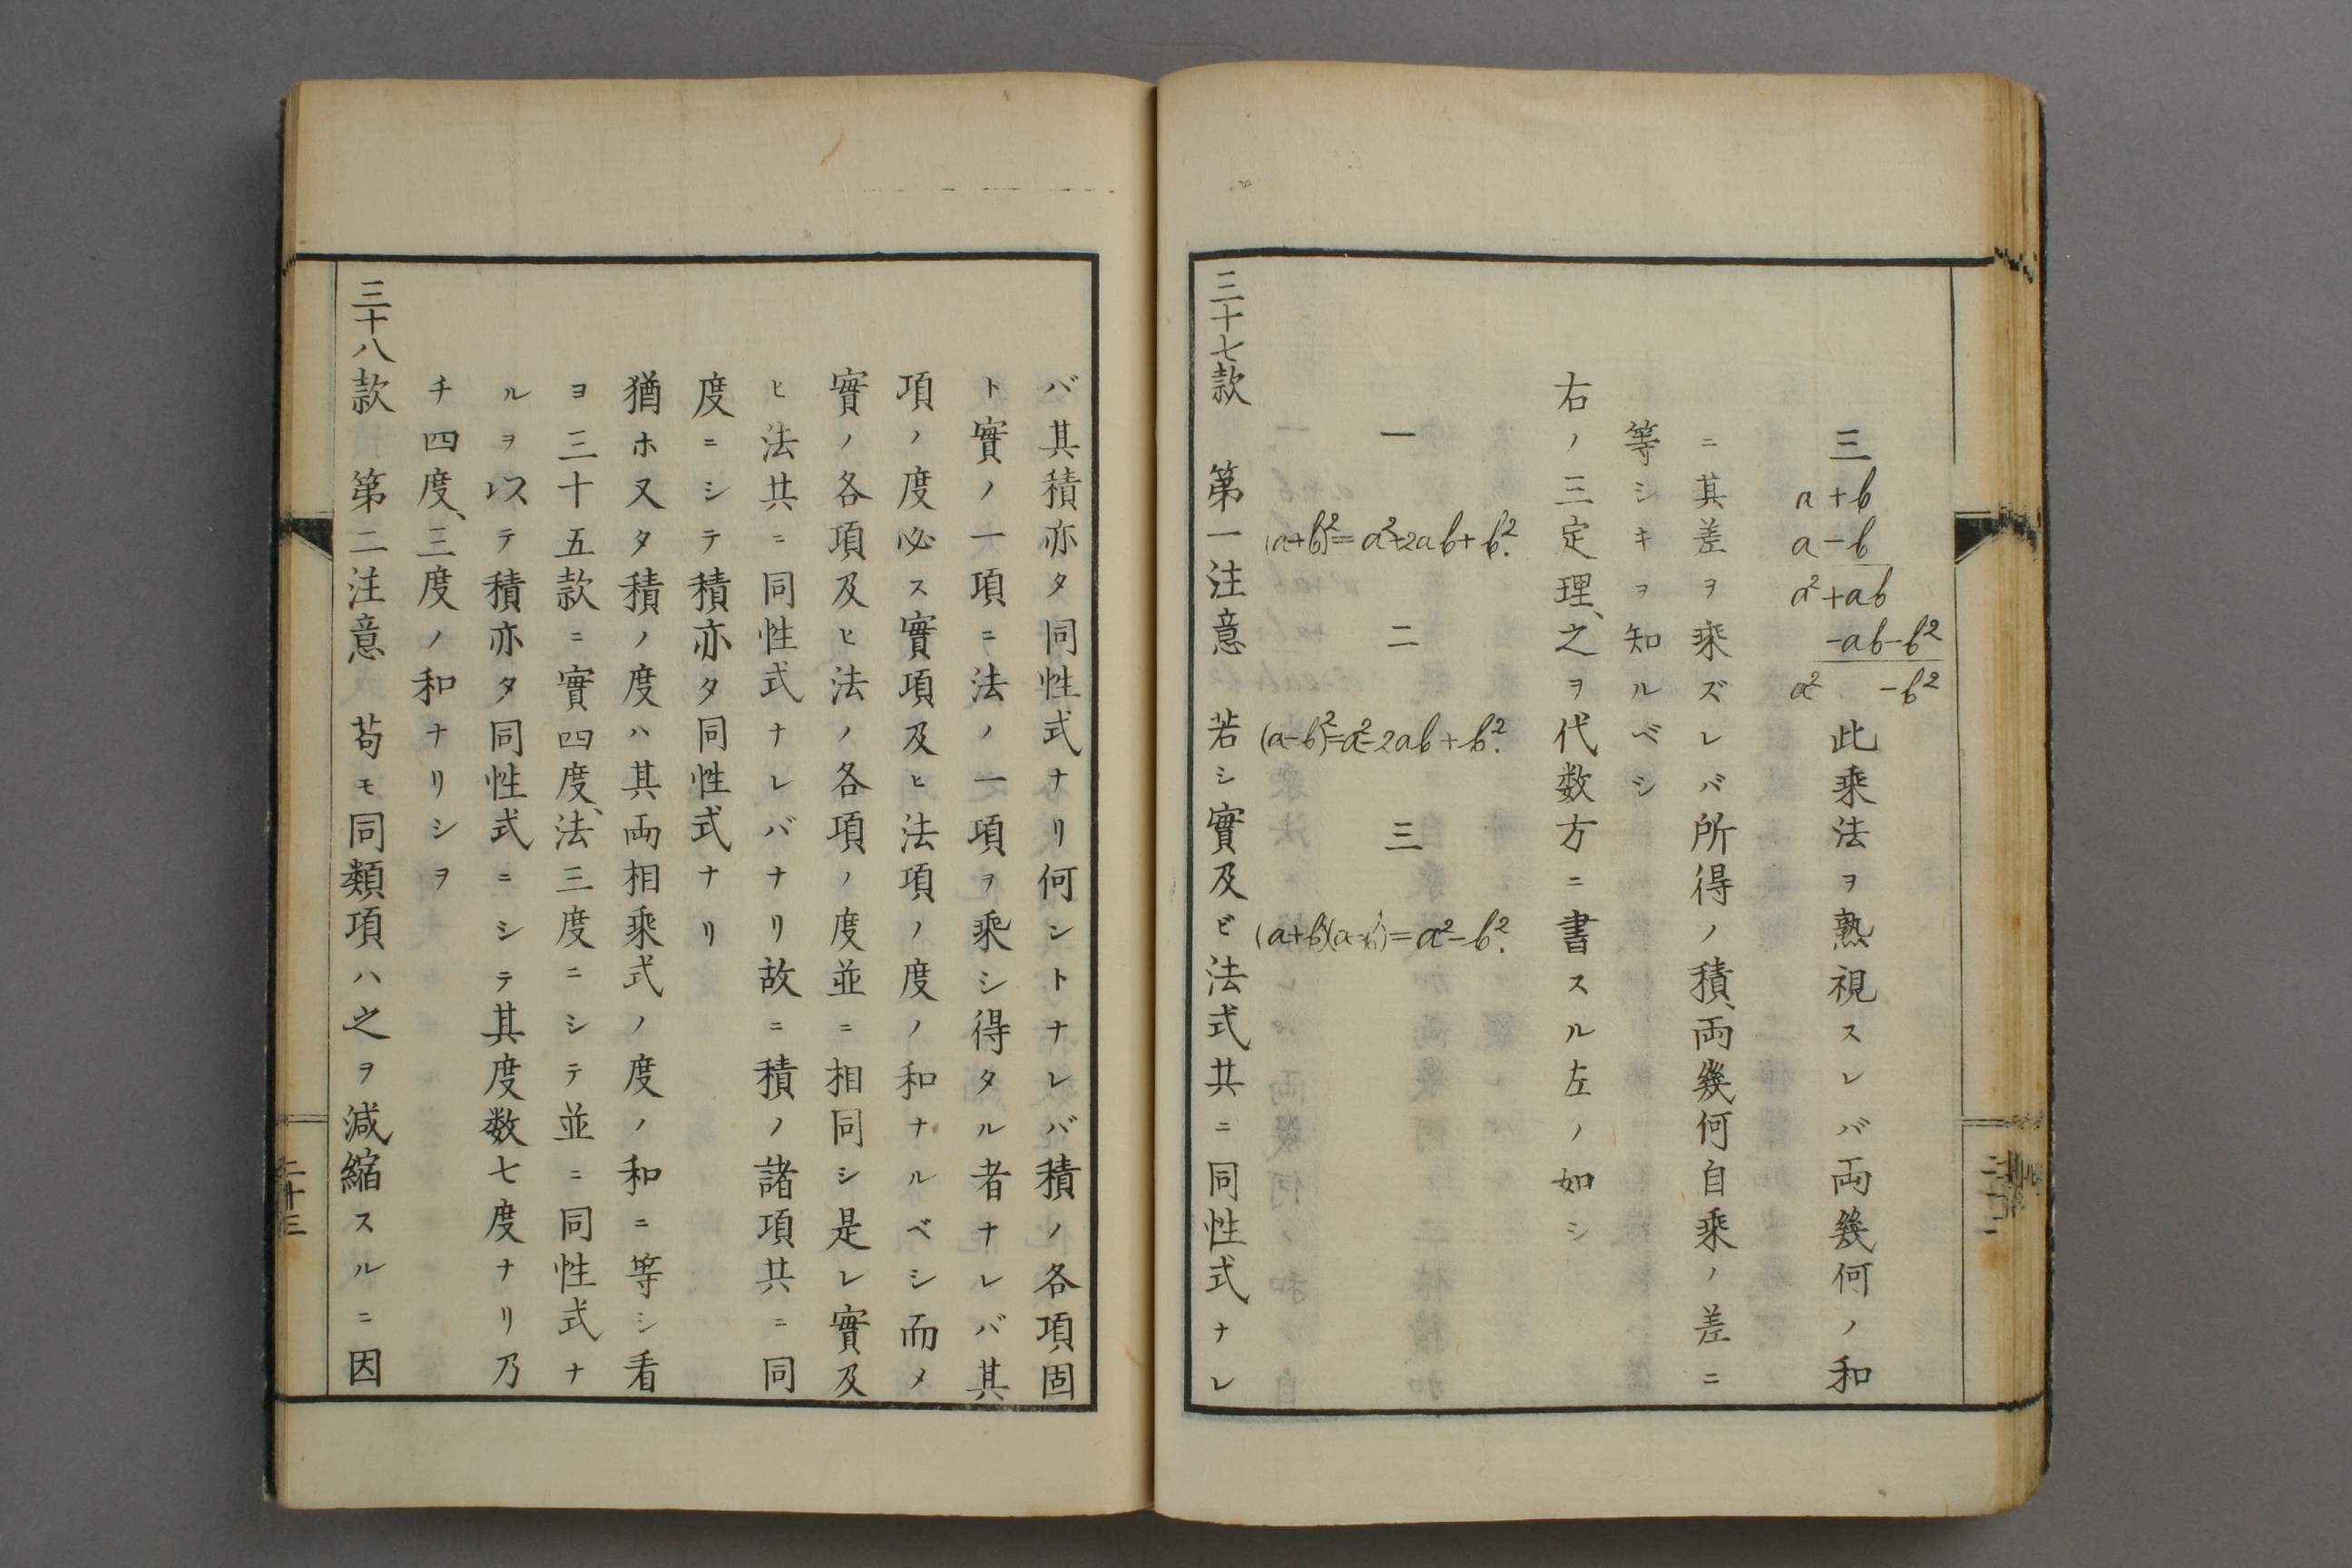 三
a+b
a-b
a²+ab
-ab-b²
a² -b²
此乘法ヲ熟視スレバ両幾何ノ和
ニ其差ヲ乘ズレバ所得ノ積、両幾何自乘ノ差ニ
等シキヲ知ルベシ
右ノ三定理、之ヲ代数方ニ書スル左ノ如シ
一
(a+b)²=a²+2ab+b².
二
(a-b)²=a²-2ab+b².
三
(a+b)(a-b)=a²-b².
三十七款 第一注意 若シ實及ビ法式共ニ同性式ナレ
バ其積亦タ同性式ナリ何ントナレバ積ノ各項固
ト實ノ一項ニ法ノ一項ヲ乘シ得タル者ナレバ其
項ノ度必ス實項及ヒ法項ノ度ノ和ナルベシ而メ
實ノ各項及ヒ法ノ各項ノ度並ニ相同シ是レ實及
ヒ法共ニ同性式ナレバナリ故ニ積ノ諸項共ニ同
度ニシテ積亦タ同性式ナリ
猶ホ又タ積ノ度ハ其両相乘式ノ度ノ和ニ等シ看
ヨ三十五款ニ實四度、法三度ニシテ並ニ同性式ナ
ルヲ以テ積亦タ同性式ニシテ其度数七度ナリ乃
チ四度、三度ノ和ナリシヲ
三十八款 第二注意 苟モ同類項ハ之ヲ減縮スルニ因
二十三